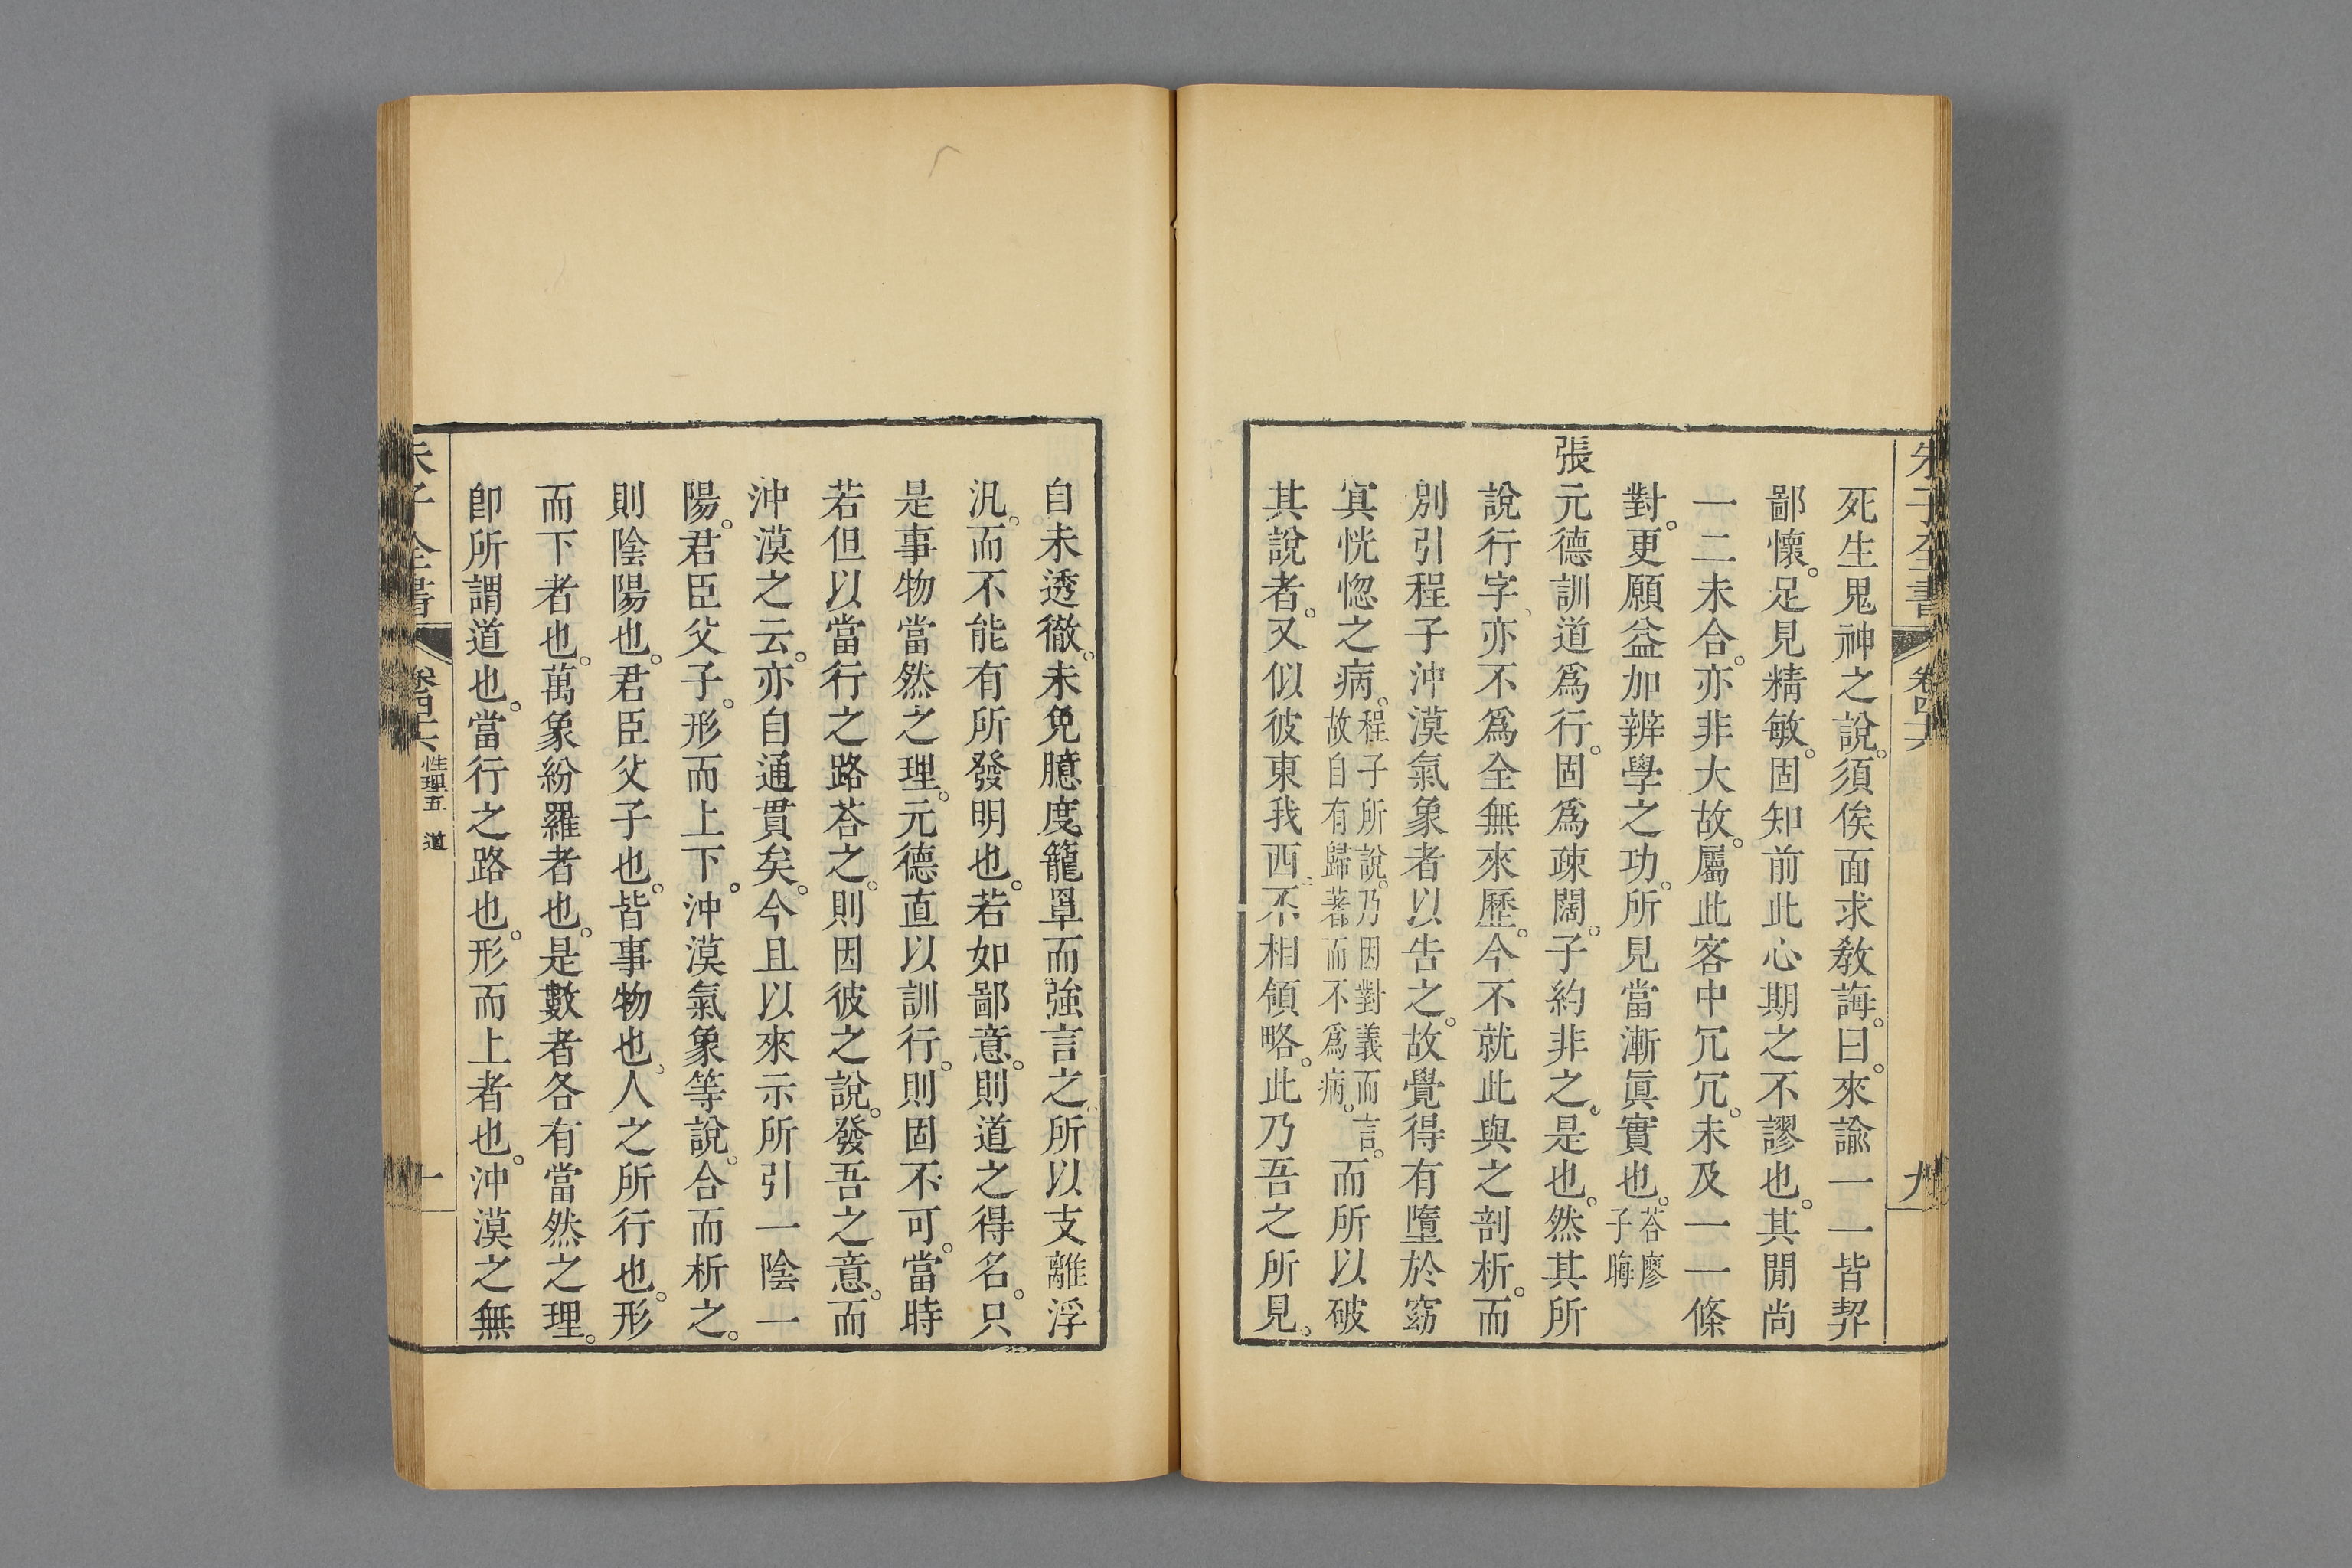 朱子全書
卷四十六
九
死生鬼神之說。須俟面求教誨。曰。來諭一一皆契
鄙懷。足見精敏。固知前此心期之不謬也。其閒尚
一二未合。亦非大故。屬此客中冗冗。未及一一條
對。更願益加辨學之功。所見當漸眞實也。荅廖子晦
張元德訓道爲行。固爲疎闊。子約非之。是也。然其所
說行字、亦不爲全無來歷。今不就此與之剖析。而
別引程子沖漠氣象者以告之。故覺得有墮於窈
冥恍惚之病。程子所說。乃因對義而言。故自有歸著而不爲病。而所以破
其說者。又似彼東我西。不相領略。此乃吾之所見。
自未透徹。未免臆度籠罩而強言之。所以支離浮
汎。而不能有所發明也。若如鄙意。則道之得名。只
是事物當然之理。元德直以訓行。則固不可。當時
若但以當行之路荅之。則因彼之說。發吾之意。而
沖漠之云。亦自通貫矣。今且以來示所引一陰一
陽。君臣父子。形而上下。沖漠氣象等說。合而析之。
則陰陽也。君臣父子也。皆事物也、人之所行也。形
而下者也。萬象紛羅者也。是數者各有當然之理。
卽所謂道也。當行之路也。形而上者也。沖漠之無
朱子全書
卷四十六
性理五 道